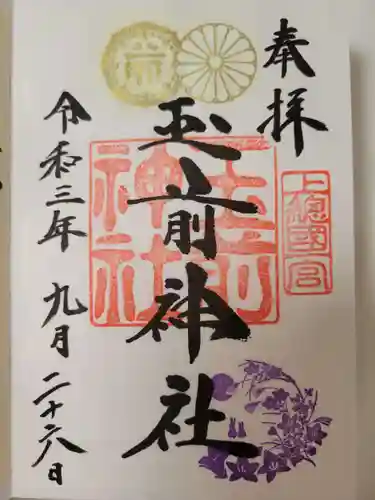 奉拝
上総国一宮
玉前神社
玉前神社
令和三年 九月 二十六日